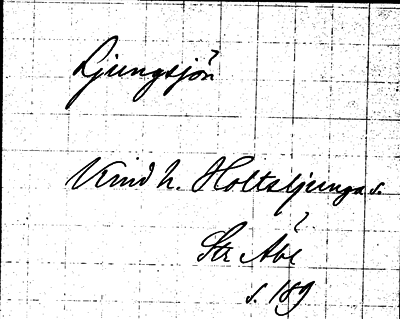 Ljungsjön
Kind h. Holtsljunga s.
Str Åbi
s. 189